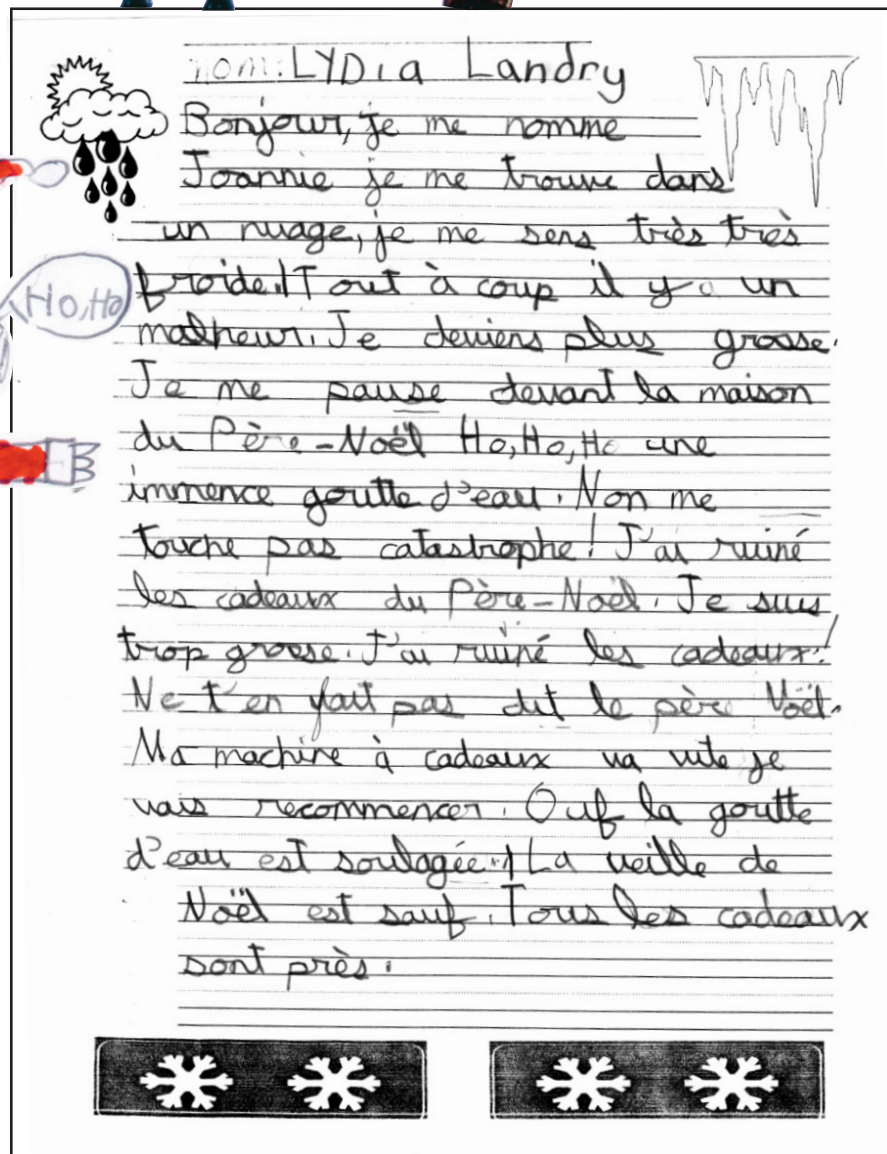 nom: LYDia Landry
Bonjour, je me nomme
Joannie je me trouve dans
un nuage, je me sens très très
froide. Tout à coup il y a un
malheur. Je deviens plus grosse.
Je me pause devant la maison
du Père-Noël Ho, Ho, Ho une
immence goutte d'eau. Non me
touche pas catastrophe! J'ai ruiné
les cadeaux du Père-Noël. Je suis
trop grosse. J'ai ruiné les cadeaux!
Ne t'en fait pas dit le père Noël.
Ma machine à cadeaux va vite je
vais recommencer. Ouf la goutte
d'eau est soulagée. La veille de
Noël est sauf. Tous les cadeaux
sont près.
Ho, Ho